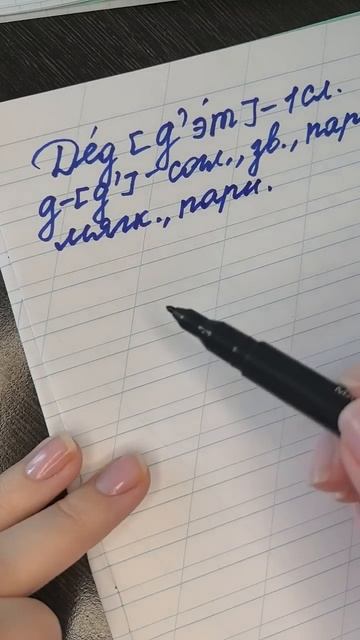 Де́д [д’э́т] – 1 сл.
д – [д’] – согл., зв., пар
мягк., парн.